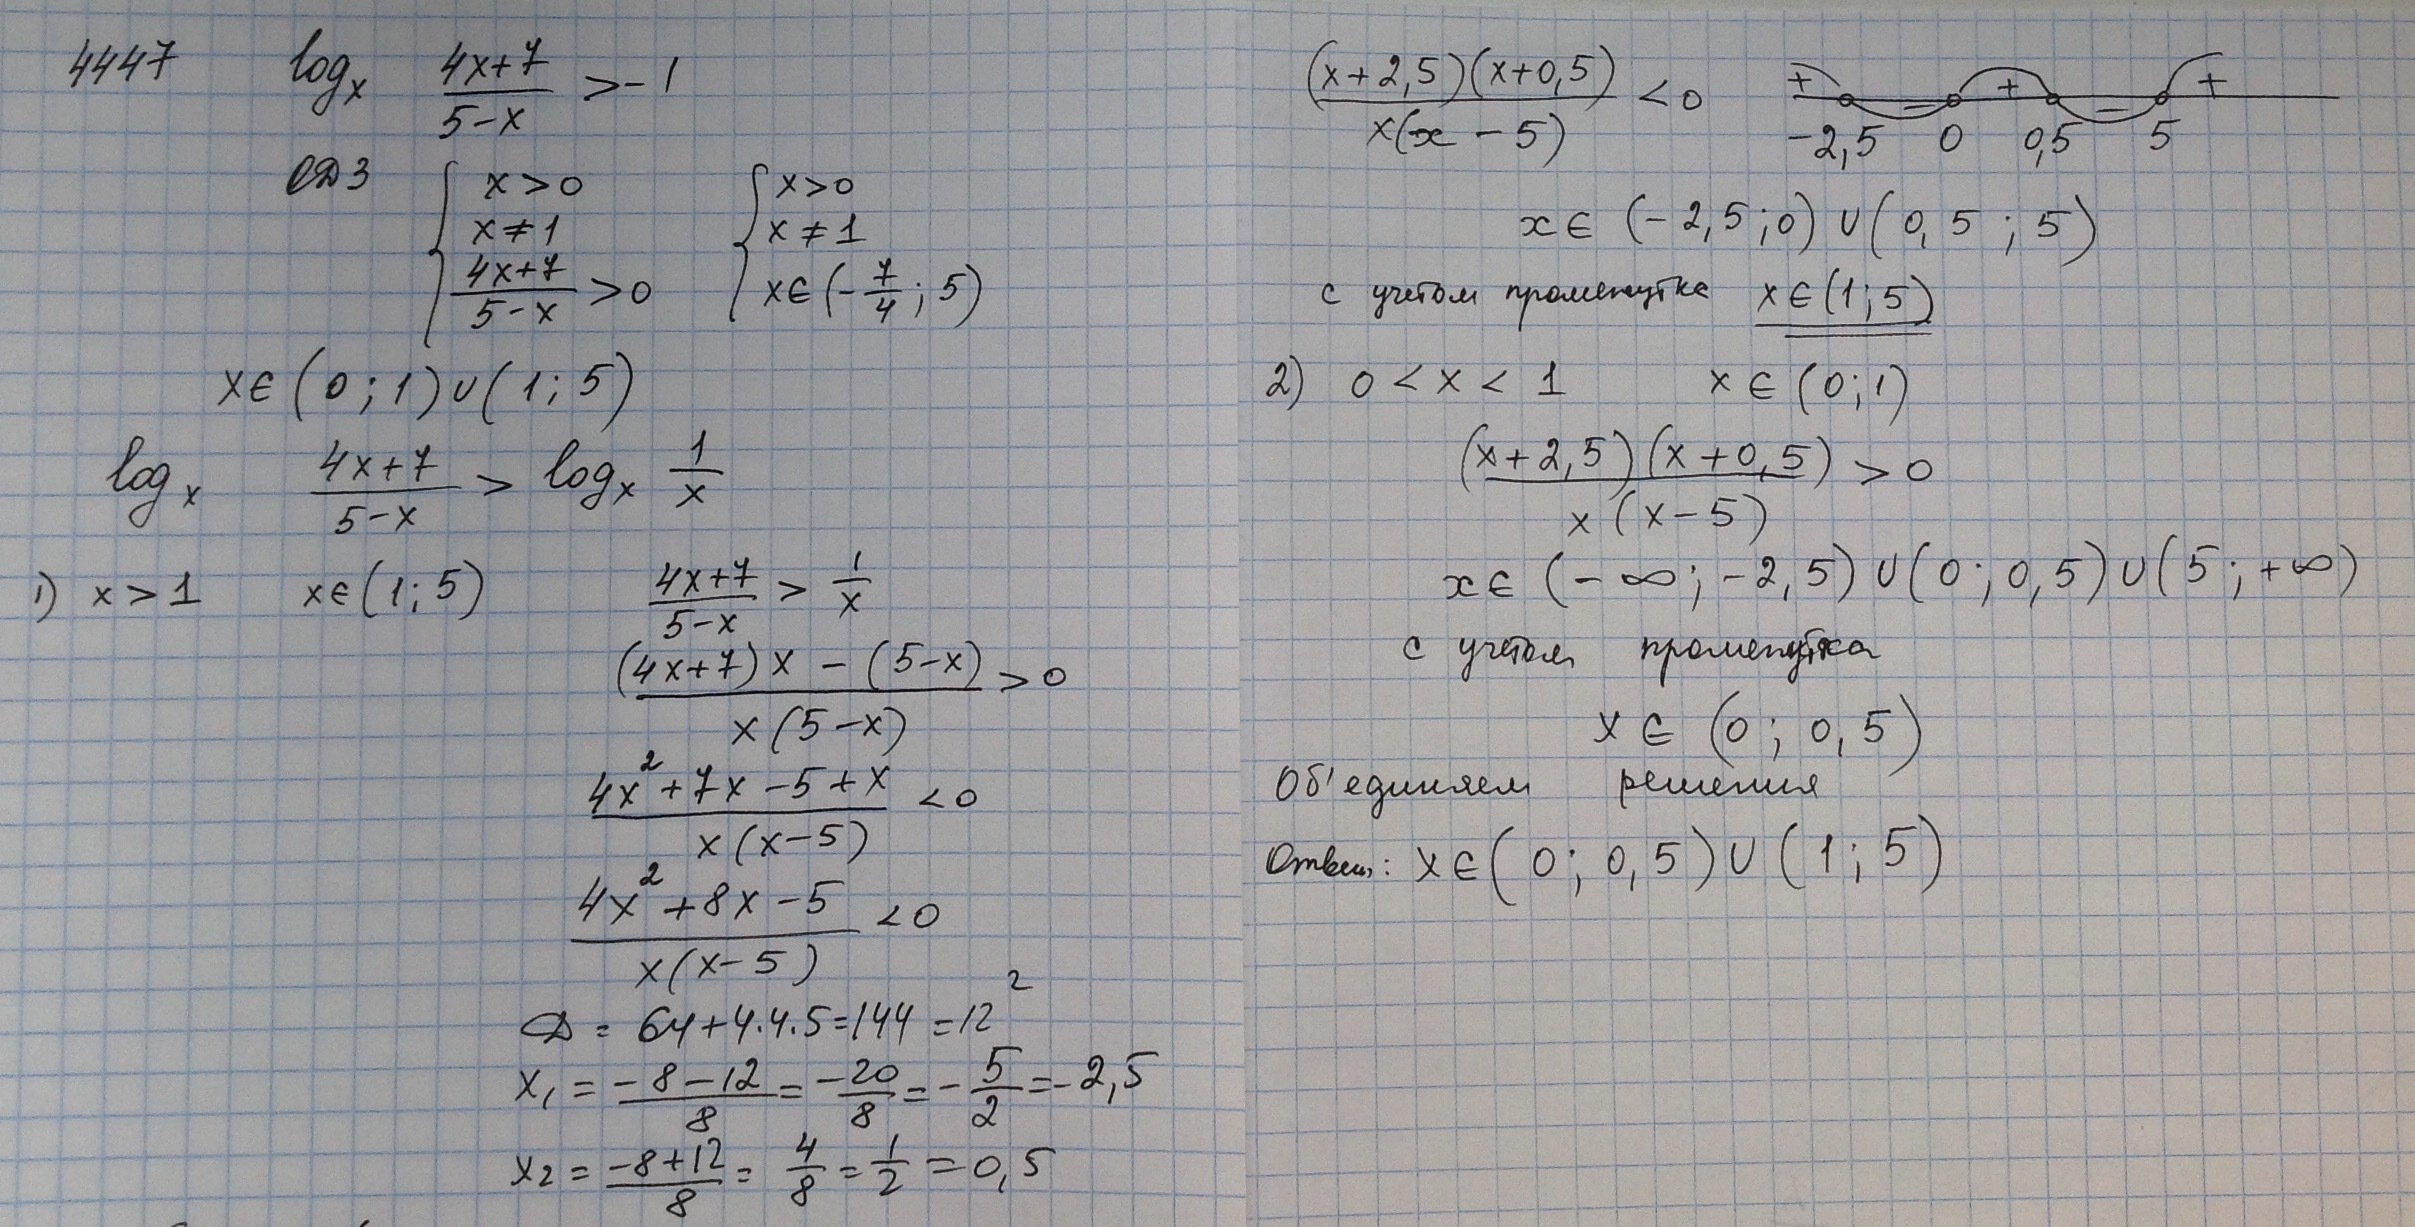 4447 log_x (4x+7)/(5-x) > -1
ОДЗ { x>0 { x>0
x≠1 x≠1
(4x+7)/(5-x) > 0 x∈(-7/4; 5)
x∈(0;1)∪(1;5)
log_x (4x+7)/(5-x) > log_x 1/x
1) x>1 x∈(1;5) (4x+7)/(5-x) > 1/x
((4x+7)x - (5-x))/(x(5-x)) > 0
(4x²+7x-5+x)/(x(x-5)) < 0
(4x²+8x-5)/(x(x-5)) < 0
D = 64+4·4·5=144=12²
x₁ = (-8-12)/8 = -20/8 = -5/2 = -2,5
x₂ = (-8+12)/8 = 4/8 = 1/2 = 0,5
((x+2,5)(x+0,5))/(x(x-5)) < 0
+ - + - +
-2,5 0 0,5 5
x∈(-2,5;0)∪(0,5;5)
с учетом промежутка x∈(1;5)
2) 0<x<1 x∈(0;1)
((x+2,5)(x+0,5))/(x(x-5)) > 0
x∈(-∞;-2,5)∪(0;0,5)∪(5;+∞)
с учетом промежутка
x∈(0;0,5)
Об'единяем решения
Ответ: x∈(0;0,5)∪(1;5)